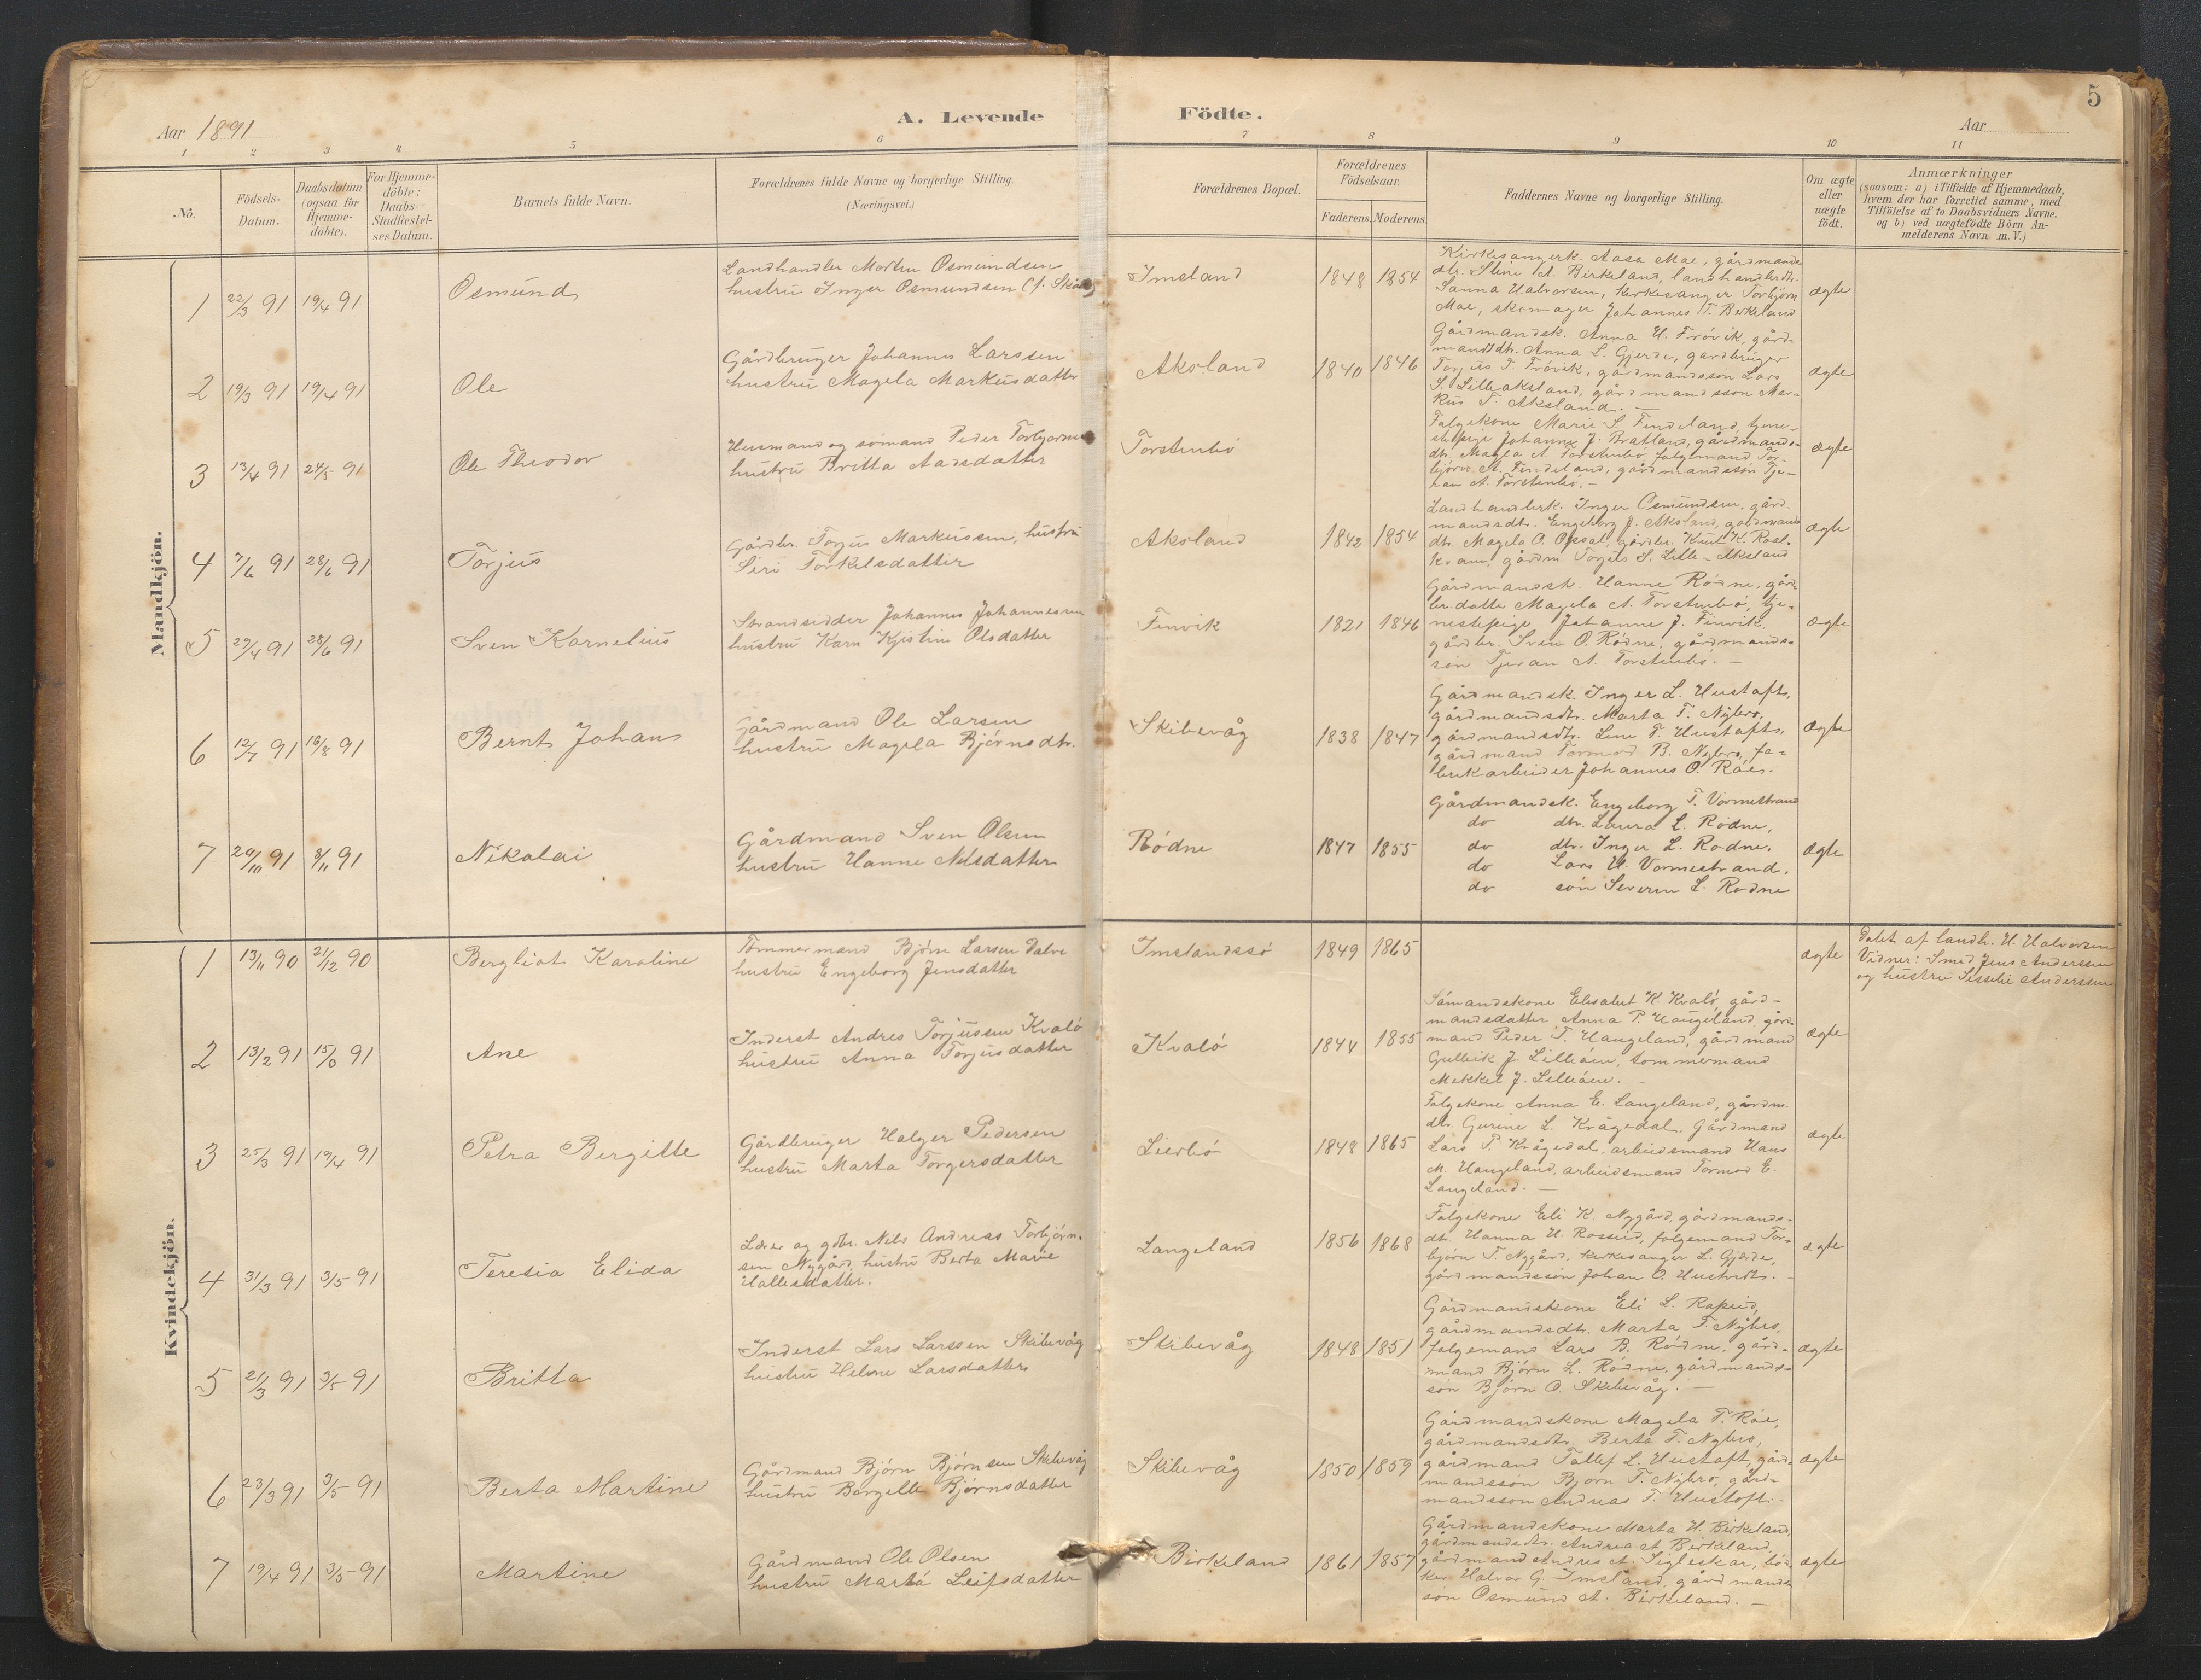 5
Aar 1891
A. Levende
Födte.
Aar
1 2 3 4 5 6 7 8 9 10 11
No.
Födsels-Datum.
Daabsdatum (ogsaa for Hjemme-döbte).
For Hjemme-döbte: Daabs-Stadfæstel-ses Datum.
Barnets fulde Navn.
Forældrenes fulde Navne og borgerlige Stilling.
(Næringsvei.)
Forældrenes Bopæl.
Forældrenes Födselsaar.
Faderens. Moderens.
Faddernes Navne og borgerlige Stilling.
Om ægte eller uægte födt.
Anmærkninger
(saasom: a) i Tilfælde af Hjemmedaab,
hvem der har forrettet samme, med
Tilföielse af to Daabsvidners Navne,
og b) ved uægtefödte Börn An-
melderens Navn m. V.)
Mandkjön.
1 22/3 91 19/4 91 Osmund
Landhandler Morten Osmundsen
hustru Inger Osmundsen
Imsland 1848 1854
Kirkesangerk. Aasa Mæ, gårdmands
dtr. Stine A. Birkeland, landhandlerdtr.
Sanna Halvorsen, kirkesanger Torbjörn
Mæ, skomager Johannes T. Birkeland
ægte
2 19/3 91 19/4 91 Ole
Gårdbruger Johannes Larssen
hustru Magela Markusdatter
Aksland 1840 1846
Gårdmandsk. Anna H. Frövik, gård-
mandsdtr. Anna L. Gjerde, gårdbruger
Torjus T. Frövik, gårdmandssön Lars
S. Lilleaksland, gårdmandssön Mar-
kus T. Aksland. —
ægte
3 13/4 91 24/5 91 Ole Theodor
Husmand og sömand Peder Torbjörns
hustru Britta Aadsdatter
Torstenbö
Folgekone Marie S. Findeland, tjene-
stepige Johanne J. Bratland, gårdmands-
dtr. Magla A. Torstenbö, folgemand Tor-
björn A. Findeland, gårdmandssön Tje-
ran A. Torstenbö. —
ægte
4 7/6 91 28/6 91 Torjus
Gårdbr. Torjus Markussen, hustru
Seri Torkelsdatter
Aksland 1842 1854
Landhandlerk. Inger Osmundsen, gård-
mandsdtr. Engeborg J. Aksland, gårdmands
dtr. Magela O. Opsal, gårdbr. Knut K. Rosl-
kvam, gårdm. Torgils S. Lille-Aksland
ægte
5 29/4 91 28/6 91 Sven Kornelius
Strandsidder Johannes Johannesen
hustru Karn Kjistine Olsdatter
Finvik 1821 1846
Gårdmandsk. Hanne Rödne, gård-
br. datter Magela A. Torstenbö, tje-
nestepige Johanne J. Finvik,
gårdbr. Sven O. Rödne, gårdmands-
sön Tjeran A. Torstenbö. —
ægte
6 12/7 91 16/8 91 Bernt Johan
Gårdmand Ole Larsen
hustru Magela Björnsdtr.
Skibevåg 1838 1847
Gårdmandsk. Inger L. Hustoft,
gårdmandsdtr. Marta T. Nybro,
gårdmandsdtr. Lene T. Hustoft,
gårdmand Tormod B. Nybro, fa-
brikarbeider Johannes O. Röe.
ægte
7 20/10 91 8/11 91 Nikolai
Gårdmand Sven Olsen
hustru Hanne Nilsdatter
Rödne 1847 1855
Gårdmandsk. Engeborg T. Vormestrand
do dtr. Laura L. Rödne,
do dtr. Inger L. Rödne,
do Lars H. Vormestrand,
do sön Severin L. Rödne
ægte
Kvindekjön.
1 13/11 90 21/12 90 Bergliot Karoline
Tömmermand Björn Larsen Dalve
hustru Engeborg Jensdatter
Imslandssö 1849 1865
ægte
Döbt af landh. H. Halvorsen
Vidner: Smed Jens Anderssen
og hustru Sesselie Anderssen
2 13/2 91 15/3 91 Ane
Inderst Andres Torjussen Kvalö
hustru Anna Torjusdatter
Kvalö 1844 1855
Sömandskone Elisabet K. Kvalö, gård-
mandsdatter Anna P. Haugeland, gård-
mand Peder T. Haugeland, gårdmand
Gulleik J. Lilleåen, tömmermand
Mekkel J. Lilleåen.
ægte
3 25/3 91 19/4 91 Petra Bergitte
Gårdbruger Holger Pedersen
hustru Marta Torgersdatter
Lierbö 1848 1865
Folgekone Anna E. Langeland, gårdm.
dtr. Gurine L. Krågedal, Gårdmand
Lars P. Krågedal, arbeidsmand Hans
M. Haugeland, arbeidsmand Tormod E.
Langeland. —
ægte
4 31/3 91 3/5 91 Teresia Elida
Lærer og gdbr. Nils Andreas Torbjörn-
sen Nygård, hustru Berta Marie
Hallesdatter.
Langeland 1856 1868
Folgekone Eli K. Nygård, gårdmands-
dtr. Hanna H. Rosseid, folgemand Tor-
björn T. Nygård, kirkesanger L. Gjerde,
gårdmandssön Johan O. Hustvedt.
ægte
5 21/3 91 3/5 91 Britta
Inderst Lars Larssen Skibevåg
hustru Helene Larsdatter
Skibevåg 1848 1851
Gårdmandskone Eli L. Rapeid,
gårdmandsdtr. Marta T. Nybro,
folgemand Lars B. Rödne, gård-
mand Björn L. Rödne, gårdmands-
sön Björn O. Skibevåg. —
ægte
6 23/3 91 3/5 91 Berta Martine
Gårdmand Björn Björnsen Skibevåg
hustru Borgella Björnsdatter
Skibevåg 1850 1859
Gårdmandskone Magela T. Röe,
gårdmandsdtr. Berta T. Nybro,
gårdmand Tollef L. Hustoft, gård-
mandssön Björn T. Nybro, gård-
mandssön Andreas T. Hustoft.
ægte
7 19/4 91 3/5 91 Martine
Gårdmand Ole Olsen
hustru Marta Leifsdatter
Birkeland 1861 1857
Gårdmandskone Marta H. Birkeland,
gårdmandsdtr. Andrea A. Birkeland,
gårdmand Andres A. Tigleskar, böd-
ker Halvor G. Imsland, gårdmands
sön Osmund A. Birkeland. —
ægte